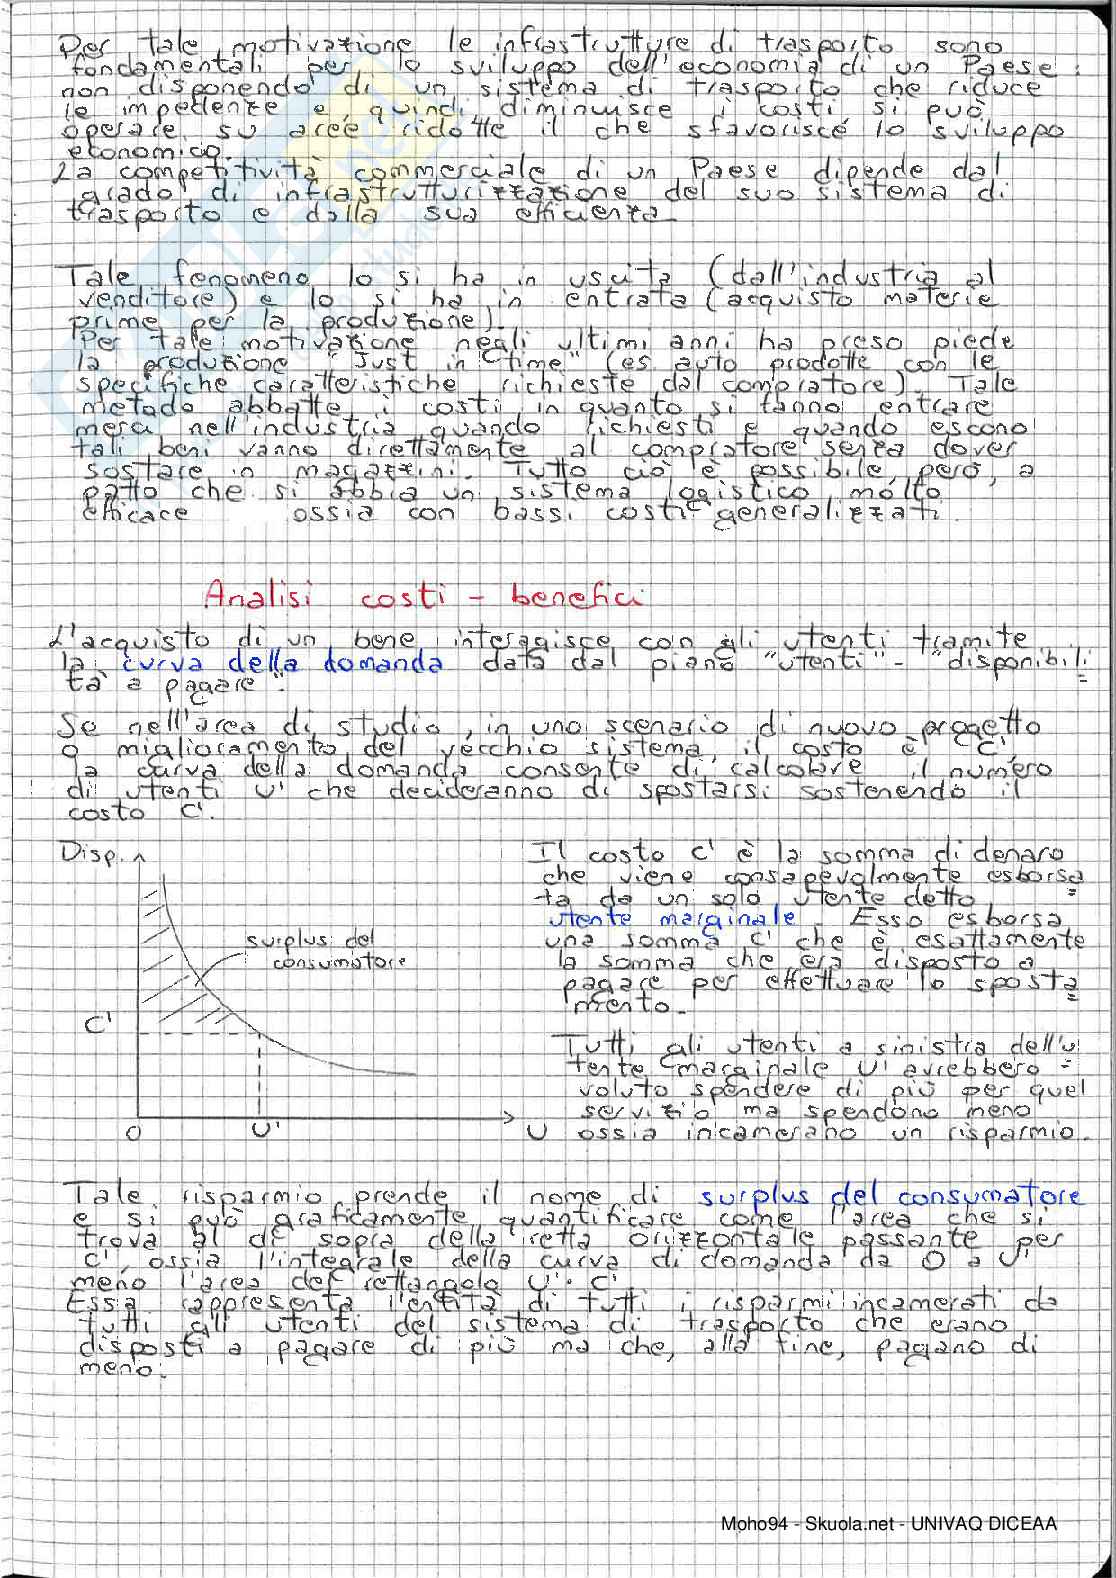 Per tale motivazione le infrastrutture di trasporto sono
fondamentali per lo sviluppo dell'economia di un Paese:
non disponendo di un sistema di trasporto che riduce
le impedenze e, quindi, diminuisce i costi si può
operare su aree ridotte il che sfavorisce lo sviluppo
economico.
La competitività commerciale di un Paese dipende dal
grado di infrastrutturizzazione del suo sistema di
trasporto e dalla sua efficienza.
Tale fenomeno lo si ha in uscita (dall'industria al
venditore) e lo si ha in entrata (acquisto materie
prime per la produzione).
Per tale motivazione negli ultimi anni ha preso piede
la produzione "Just in time" (es auto prodotte con le
specifiche caratteristiche richieste dal compratore). Tale
metodo abbatte i costi in quanto si fanno entrare
merci nell'industria quando richiesti e quando escono
tali beni vanno direttamente al compratore senza dover
sostare in magazzini. Tutto ciò è possibile, però, a
patto che si abbia un sistema logistico molto
efficace ossia con bassi costi generalizzati.
Analisi costi - benefici
L'acquisto di un bene interagisce con gli utenti tramite
la curva della domanda data dal piano "utenti" - "disponibili
tà a pagare".
Se nell'area di studio, in uno scenario di nuovo progetto
o miglioramento del vecchio sistema, il costo è C',
la curva della domanda consente di calcolare il numero
di utenti U' che decideranno di spostarsi sostenendo il
costo C'.
Disp.
surplus del
consumatore
C'
O U' U
Il costo C' è la somma di denaro
che viene consapevolmente esborsa
ta da un solo utente detto
utente marginale. Esso esborsa
una somma C' che è esattamente
la somma che era disposto a
pagare per effettuare lo sposta
mento.
Tutti gli utenti a sinistra dell'u
tente marginale U' avrebbero
voluto spendere di più per quel
servizio ma spendono meno
ossia incamerano un risparmio.
Tale risparmio prende il nome di surplus del consumatore
e si può graficamente quantificare come l'area che si
trova al di sopra della retta orizzontale passante per
C', ossia l'integrale della curva di domanda da O a U'
meno l'area del rettangolo U'·C'.
Essa rappresenta l'entità di tutti i risparmi incamerati da
tutti gli utenti del sistema di trasporto che erano
disposti a pagare di più ma che, alla fine, pagano di
meno.
Moho94 - Skuola.net - UNIVAQ DICEAA